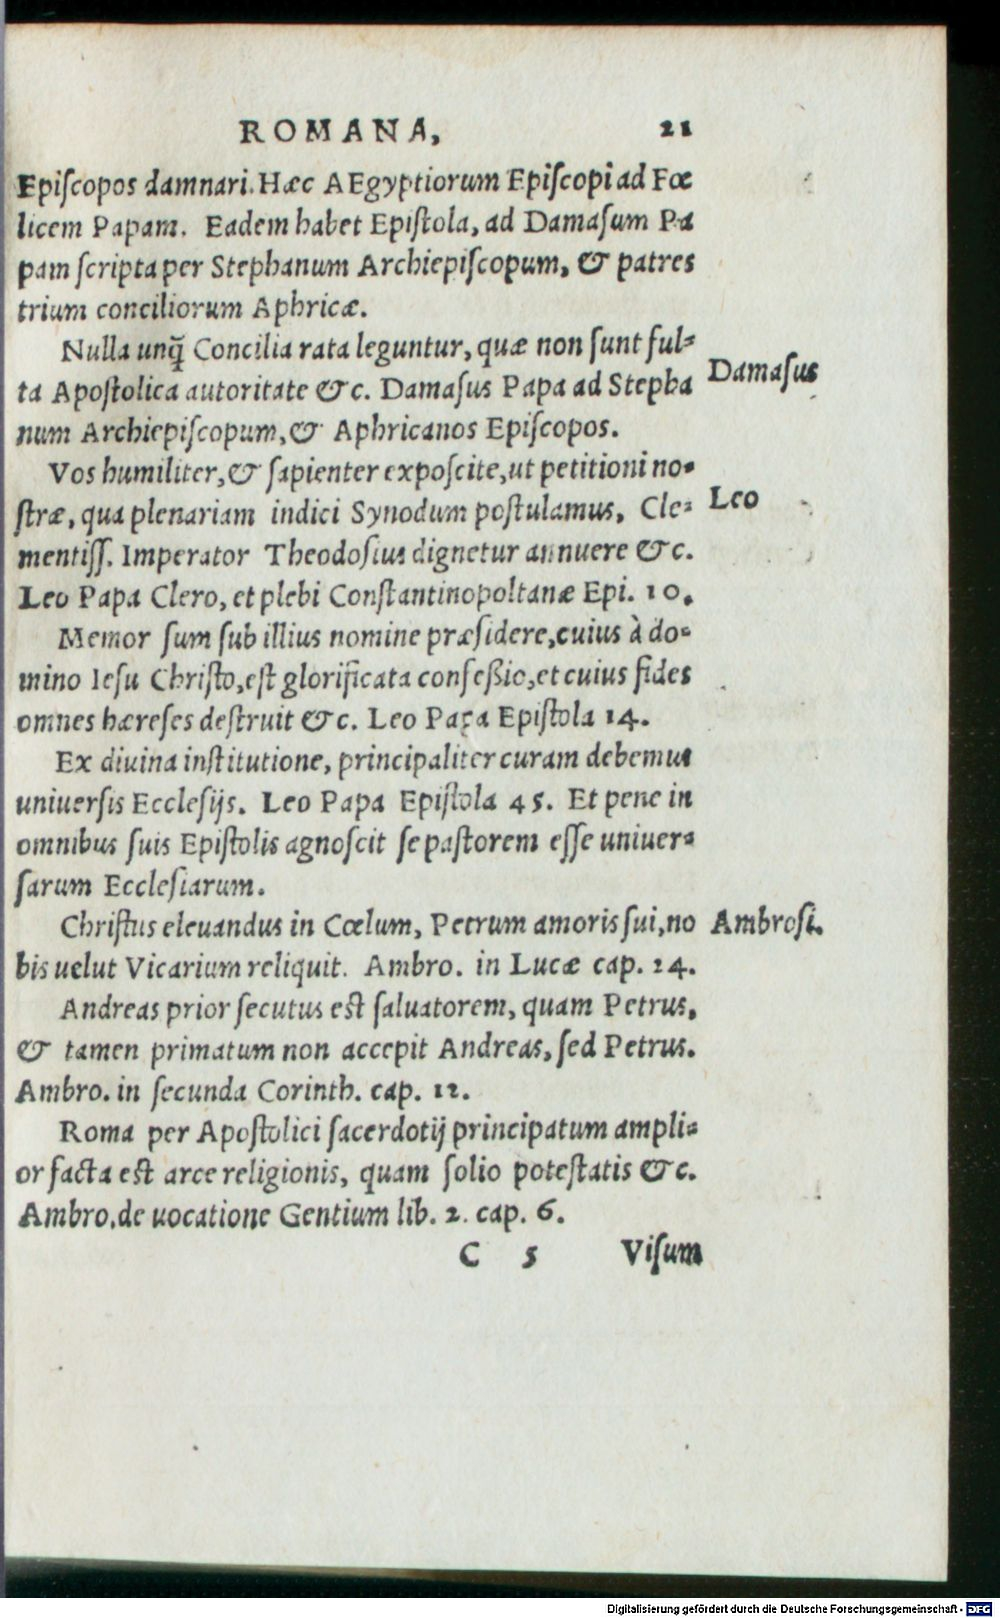 ROMANA, 21
Episcopos damnari. Hæc AEgyptiorum Episcopi ad Fœ
licem Papam. Eadem habet Epistola, ad Damasum Pa
pam scripta per Stephanum Archiepiscopum, & patres
trium conciliorum Aphricæ.
Nulla unq̃ Concilia rata leguntur, quæ non sunt ful-
ta Apostolica autoritate &c. Damasus Papa ad Stepha
Damasus
num Archiepiscopum, & Aphricanos Episcopos.
Vos humiliter, & sapienter exposcite, ut petitioni no-
stræ, qua plenariam indici Synodum postulamus, Cle-
Leo
mentiss. Imperator Theodosius dignetur annuere &c.
Leo Papa Clero, et plebi Constantinopoltanæ Epi. 10.
Memor sum sub illius nomine præsidere, cuius à do-
mino Iesu Christo, est glorificata confeßio, et cuius fides
omnes hæreses destruit &c. Leo Papa Epistola 14.
Ex diuina institutione, principaliter curam debemus
uniuersis Ecclesijs. Leo Papa Epistola 45. Et pene in
omnibus suis Epistolis agnoscit se pastorem esse uniuer-
sarum Ecclesiarum.
Christus eleuandus in Cœlum, Petrum amoris sui, no
Ambrosi.
bis uelut Vicarium reliquit. Ambro. in Lucæ cap. 24.
Andreas prior secutus est saluatorem, quam Petrus,
& tamen primatum non accepit Andreas, sed Petrus.
Ambro. in secunda Corinth. cap. 12.
Roma per Apostolici sacerdotij principatum ampli-
or facta est arce religionis, quam solio potestatis &c.
Ambro. de uocatione Gentium lib. 2. cap. 6.
C 5 Visum
Digitalisierung gefördert durch die Deutsche Forschungsgemeinschaft - DFG